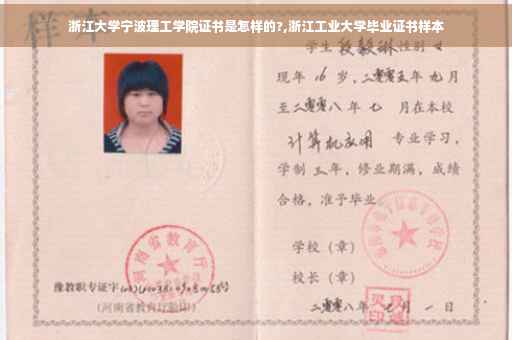 浙江大学宁波理工学院证书是怎样的?,浙江工业大学毕业证书样本
样本
学生 段毅琳 性别 女
现年 16 岁,二零零五年 九月
至二零零八年 七 月在本校
计算机应用 专业学习,
学制 三 年,修业期满,成绩
合格,准予毕业
学校(章)
校长(章)
河南省教育厅
豫教职专证字
(河南省教育厅验印)
二零零八年 七 月 一 日